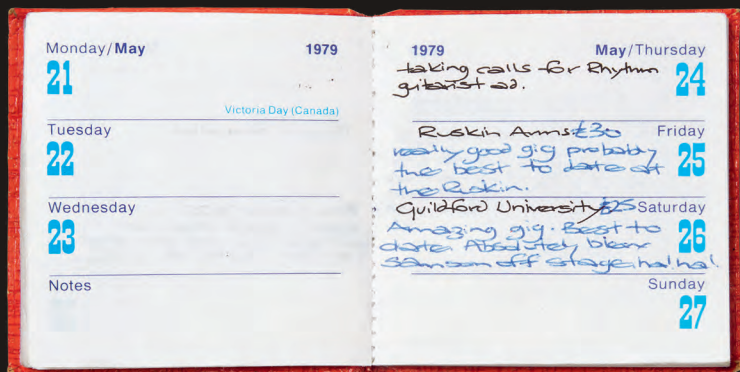 Monday/May 1979
21
Victoria Day (Canada)
Tuesday
22
Wednesday
23
Notes
1979 May/Thursday
24
taking calls for Rhythm
gitarist ad.
Friday
25
Ruskin Arms £30
really good gig probably
the best to date at
the Ruskin.
Saturday
26
Guildford University £25
Amazing gig. Best to
date. Absolutely blew
samson off stage, ha! ha!
Sunday
27